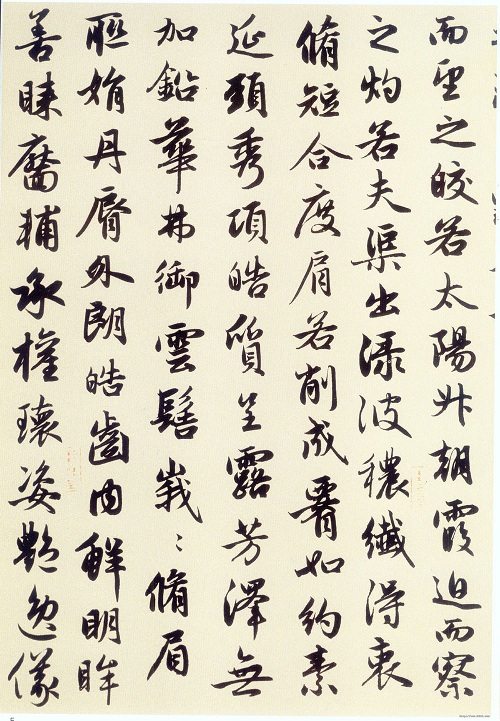 而望之皎若太陽升朝霞迫而察
之灼若夫渠出淥波穠纖得衷
脩短合度肩若削成腰如約素
延頸秀項皓質呈露芳澤無
加鉛華弗御雲髻峩〻脩眉
聮娟丹脣外朗皓齒内鮮明眸
善睞靨輔承權瓌姿艷逸儀